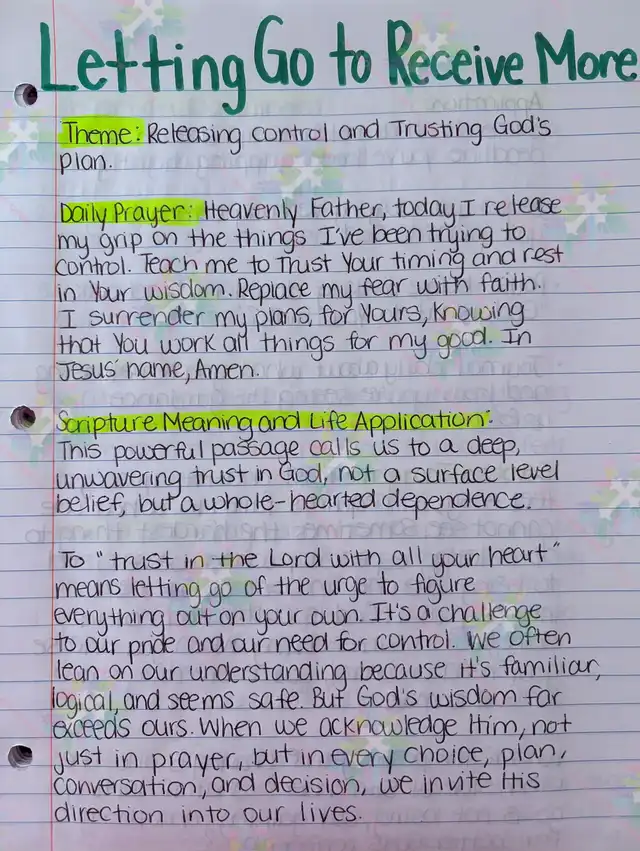 Letting Go to Receive More
Theme: Releasing control and Trusting God's
plan.
Daily Prayer: Heavenly Father, today I release
my grip on the things I've been trying to
control. Teach me to Trust Your timing and rest
in Your wisdom. Replace my fear with faith.
I surrender my plans, for Yours, knowing
that You work all things for my good. In
Jesus' name, Amen.
Scripture Meaning and Life Application:
This powerful passage calls us to a deep,
unwavering trust in God, not a surface level
belief, but a whole-hearted dependence.
To "trust in the Lord with all your heart"
means letting go of the urge to figure
everything out on your own. It's a challenge
to our pride and our need for control. We often
lean on our understanding because it's familiar,
logical, and seems safe. But God's wisdom far
exceeds ours. When we acknowledge Him, not
just in prayer, but in every choice, plan,
conversation, and decision, we invite His
direction into our lives.